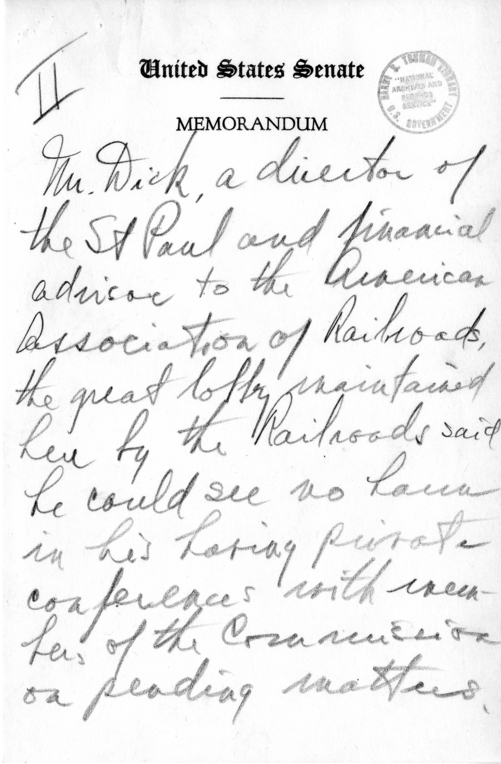 II
United States Senate
MEMORANDUM
HARRY S. TRUMAN LIBRARY
"NATIONAL
ARCHIVES AND
RECORDS
SERVICE"
U.S. GOVERNMENT
Mr. Dick, a director of
the St Paul and financial
advisor to the American
Association of Railroads,
the great lobby maintained
here by the Railroads said
he could see no harm
in his having private
conferences with mem-
bers of the Commission
on pending matters.